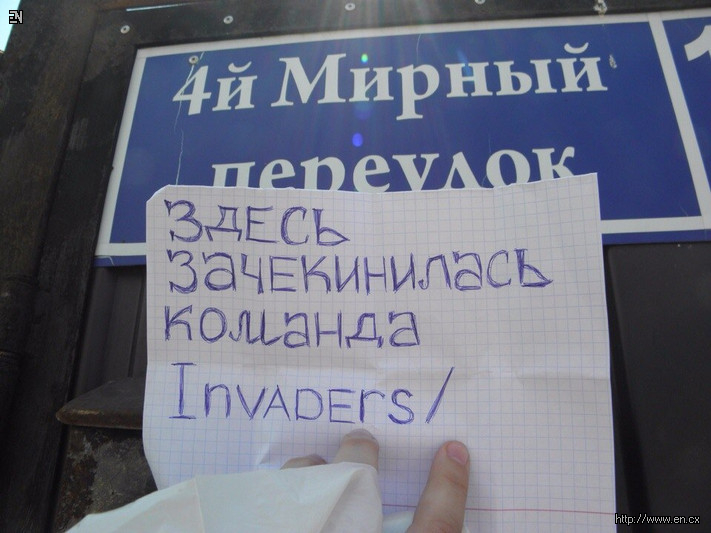 EN
4й Мирный
переулок
1
ЗДЕСЬ
ЗАЧЕКИНИЛАСЬ
КОМАНДА
INVADErs/
http://www.en.cx